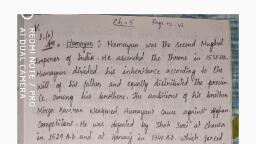 Ch-5
Page no-42
1.(a)
Ans Humayun : Humayun was the second Mughal
Emperor of India. He ascended the throne in 1530 AD.
Humayun divided his inheritance according to the
will of his father and equally distributed the
among his brothers. The ambitions of his brother
Mirza Kamran weakened Humayun's cause against Afghan
He was defeated by at
in A.D. and at A.D. which forced
REDMI NOTE 7 PRO
AI DUAL CAMERA